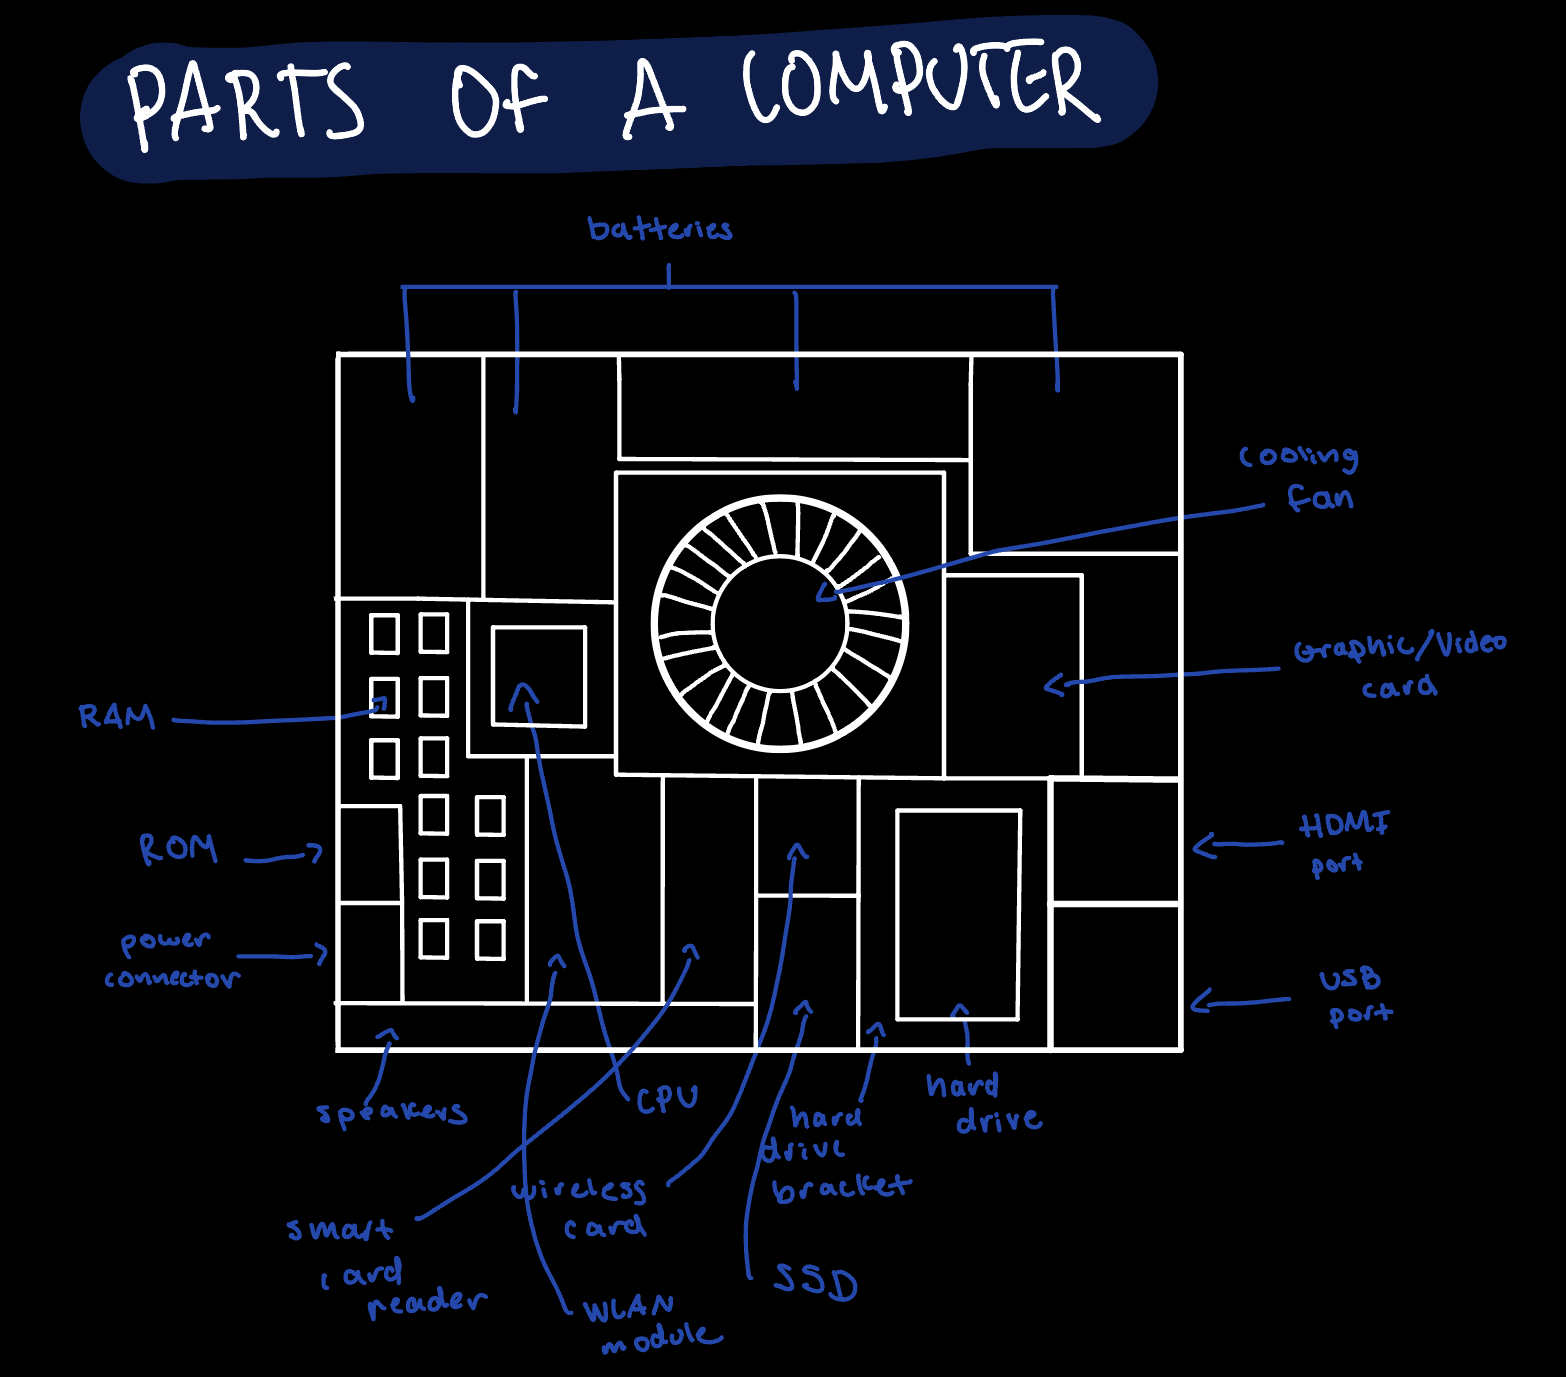 PARTS OF A COMPUTER
batteries
cooling
fan
Graphic/Video
card
RAM
HDMI
port
ROM
power
connector
USB
port
speakers
CPU
hard
drive
hard
drive
bracket
wireless
card
smart
card
reader
SSD
WLAN
module